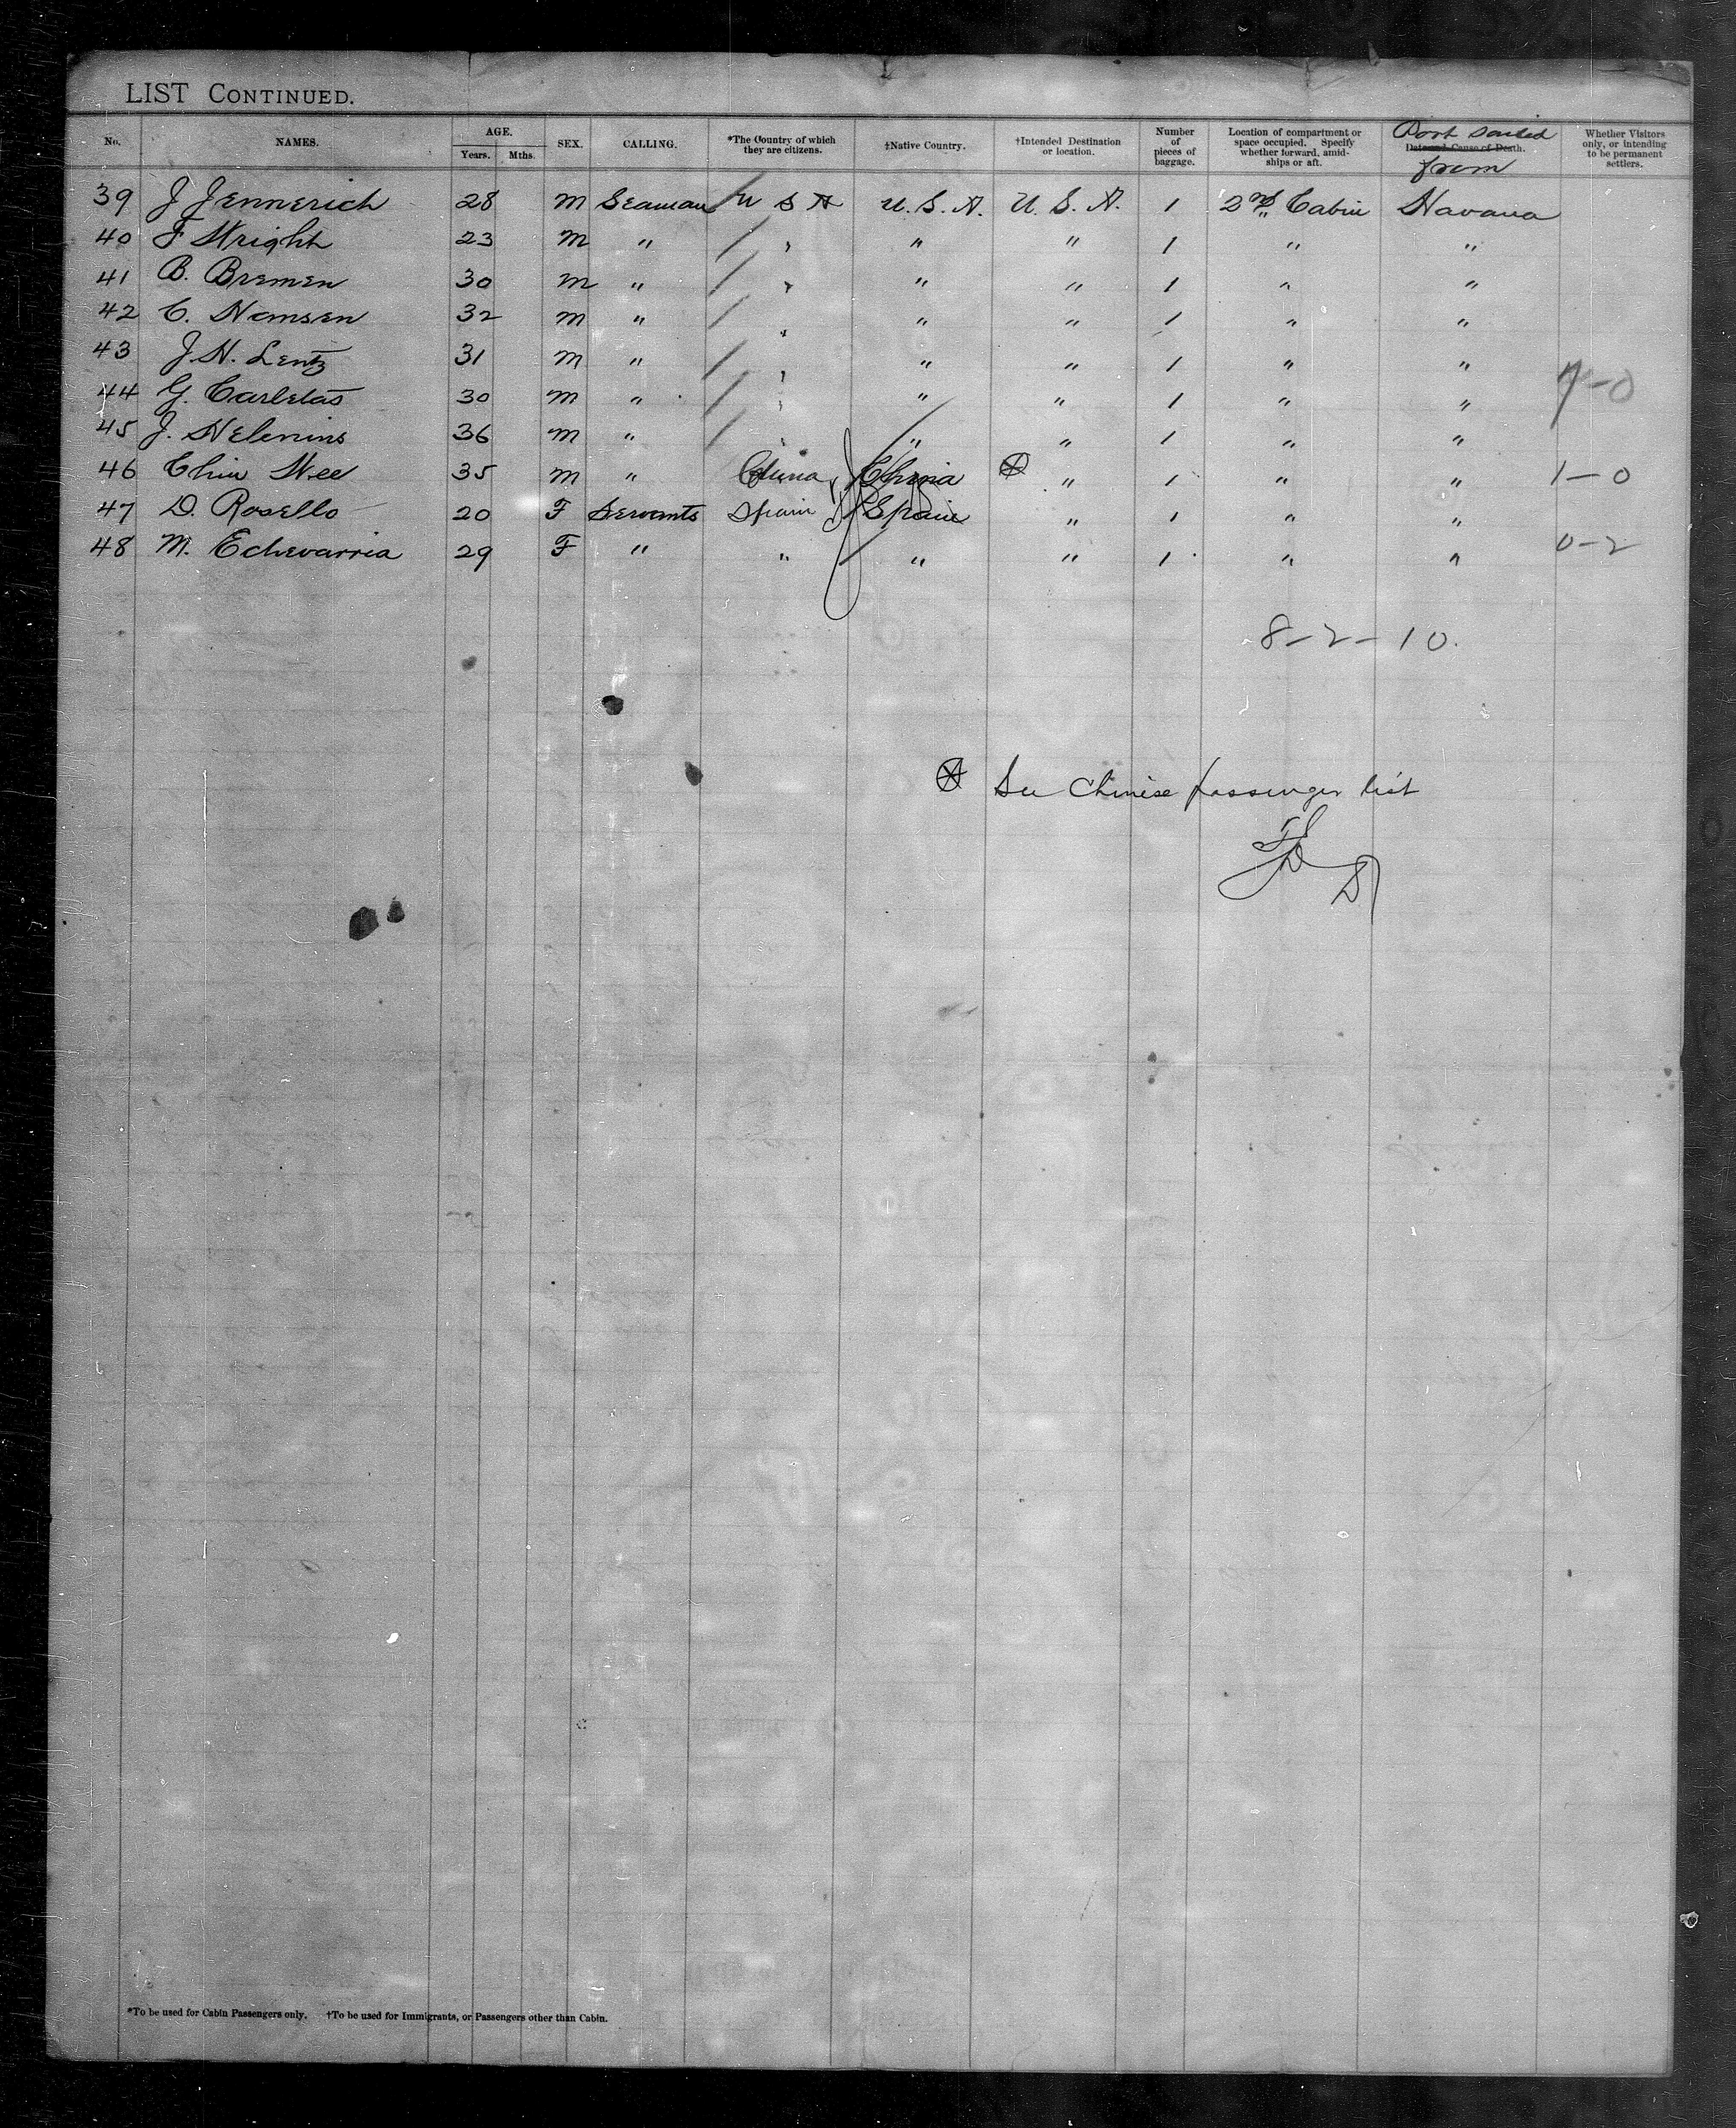 LIST CONTINUED.
No. NAMES. AGE. Years. Mths. SEX. CALLING. *The Country of which they are citizens. †Native Country. †Intended Destination or location. Number of pieces of baggage. Location of compartment or space occupied. Specify whether forward, amidships or aft. Date and Cause of Death. Port sailed from Whether Visitors only, or intending to be permanent settlers.
39 J Jennerich 28 M Seaman U S A U.S.A. U.S.A. 1 2nd Cabin Havana
40 F Wright 23 M " " " " 1 " "
41 B. Bremen 30 M " " " " 1 " "
42 C. Hansen 32 M " " " " 1 " "
43 J.H. Lentz 31 M " " " " 1 " "
7-0
44 G. 30 M " " " " 1 " "
45 J. 36 M " " " " 1 " "
46 Chin Wee 35 M " China China " 1 " " 1-0
47 D. Rosello 20 F Servants Spain Spain " 1 " "
48 M. Echevarria 29 F " " " " 1 " " 0-2
8-2-10.
See Chinese passenger list
*To be used for Cabin Passengers only. †To be used for Immigrants, or Passengers other than Cabin.